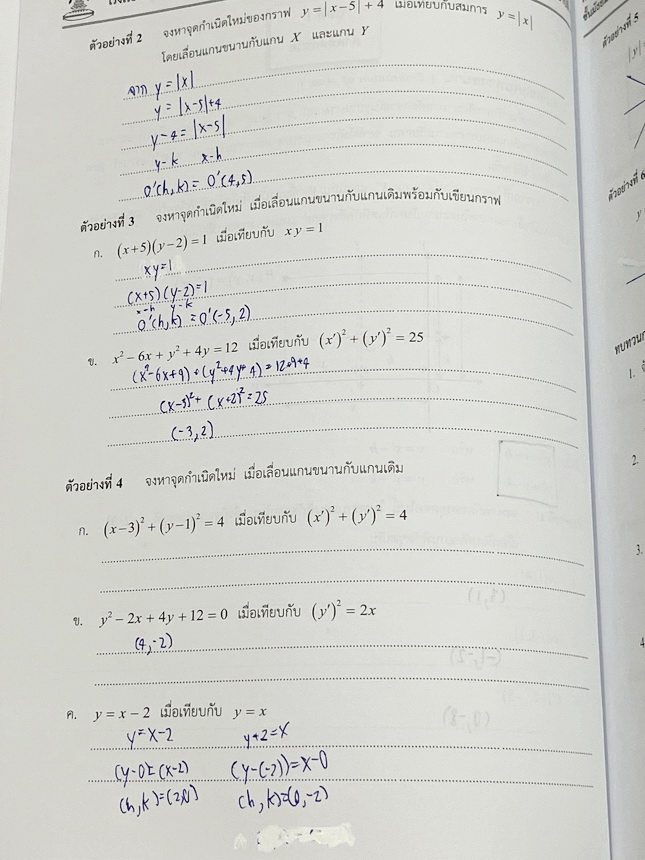 ตัวอย่างที่ 2 จงหาจุดกำเนิดใหม่ของกราฟ y = |x−5| + 4 เมื่อเทียบกับสมการ y = |x|
โดยเลื่อนแกนขนานกับแกน X และแกน Y
จาก y = |x|
y = |x−5|+4
y−4 = |x−5|
y−k x−h
0'(h,k) = 0'(4,5)
ตัวอย่างที่ 3 จงหาจุดกำเนิดใหม่ เมื่อเลื่อนแกนขนานกับแกนเดิมพร้อมกับเขียนกราฟ
ก. (x+5)(y−2) = 1 เมื่อเทียบกับ xy = 1
xy=1
(x+5)(y−2)=1
x−h y−k
0'(h,k) = 0'(−5,2)
ข. x² − 6x + y² + 4y = 12 เมื่อเทียบกับ (x′)² + (y′)² = 25
(x²−6x+9)+(y²+4y+4) = 12+9+4
(x−3)²+(x+2)²=25
(−3,2)
ตัวอย่างที่ 4 จงหาจุดกำเนิดใหม่ เมื่อเลื่อนแกนขนานกับแกนเดิม
ก. (x−3)² + (y−1)² = 4 เมื่อเทียบกับ (x′)² + (y′)² = 4
ข. y² − 2x + 4y + 12 = 0 เมื่อเทียบกับ (y′)² = 2x
(4,−2)
ค. y = x − 2 เมื่อเทียบกับ y = x
y=x−2 y+2=x
(y−0)=(x−2) (y−(−2))=x−0
(h,k)=(2,0) (h,k)=(0,−2)
ตัวอย่างที่ 5
ตัวอย่างที่ 6
1.
2.
3.
4